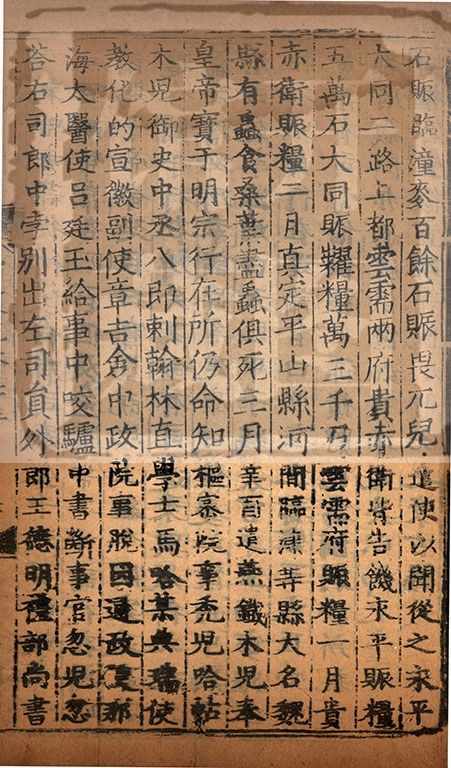 石賑臨潼麥百餘石賑畏兀兒遣使以聞從之永平
大同二路上都雲需兩府貴赤衛皆告饑永平賑糧
五萬石大同賑糶糧萬三千石雲需府賑糧一月貴
赤衛賑糧二月真定平山縣河間臨津等縣大名魏
縣有蟲食桑葉盡蟲俱死三月辛酉遣燕鐵木兒奉
皇帝寶于明宗行在所仍命知樞密院事禿兒哈帖
木児御史中丞八即剌翰林直學士馬哈某典瑞使
教化的宣徽副使章吉僉中政院事脫因通政使那
海太醫使呂廷玉給事中咬驢中書斷事官忽児忽
荅右司郎中孛別出左司員外郎王德明禮部尚書